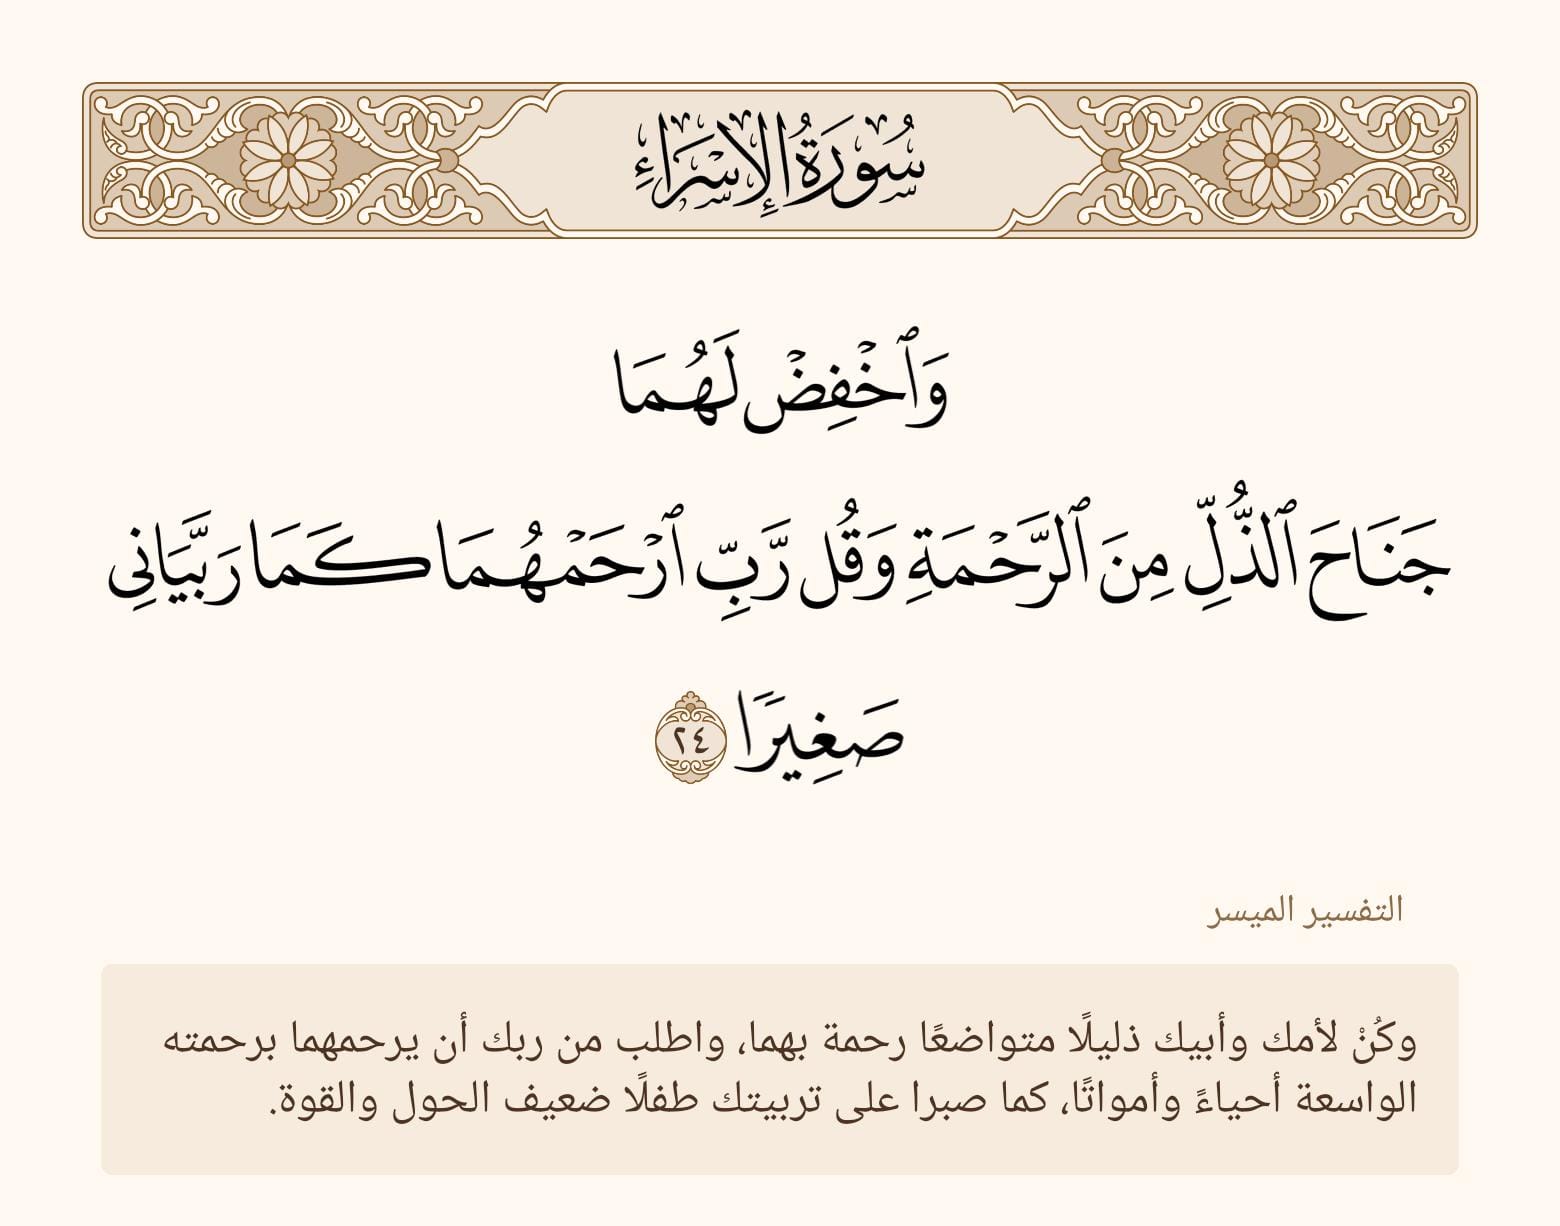 سُورَةُ الإِسْرَاءِ
وَٱخۡفِضۡ لَهُمَا
جَنَاحَ ٱلذُّلِّ مِنَ ٱلرَّحۡمَةِ وَقُل رَّبِّ ٱرۡحَمۡهُمَا كَمَا رَبَّيَانِي
صَغِيرٗا ٢٤
التفسير الميسر
وكُنْ لأمك وأبيك ذليلًا متواضعًا رحمة بهما، واطلب من ربك أن يرحمهما برحمته
الواسعة أحياءً وأمواتًا، كما صبرا على تربيتك طفلًا ضعيف الحول والقوة.